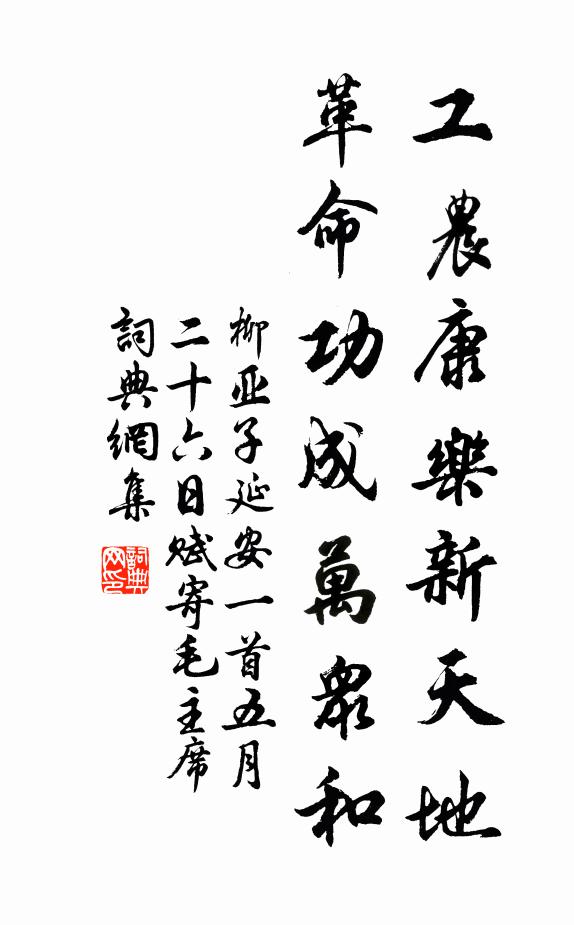 工農康樂新天地
革命功成萬眾和
柳亚子延安一首五月
二十六日赋寄毛主席
詞典網集
詞典
网印